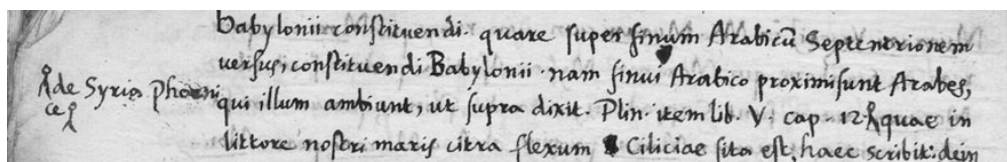 Babylonii constituendi. quare super sinum Arabicū Septentrionem
versus, constituendi Babylonii. nam sinui Arabico proximi sunt Arabes,
de Syria Phoeni
ce
qui illum ambiunt, ut supra dixit. Plin. item lib. V. cap. 12. quae in
littore nostri maris citra flexum Ciliciae sita est, haec scribit: dein